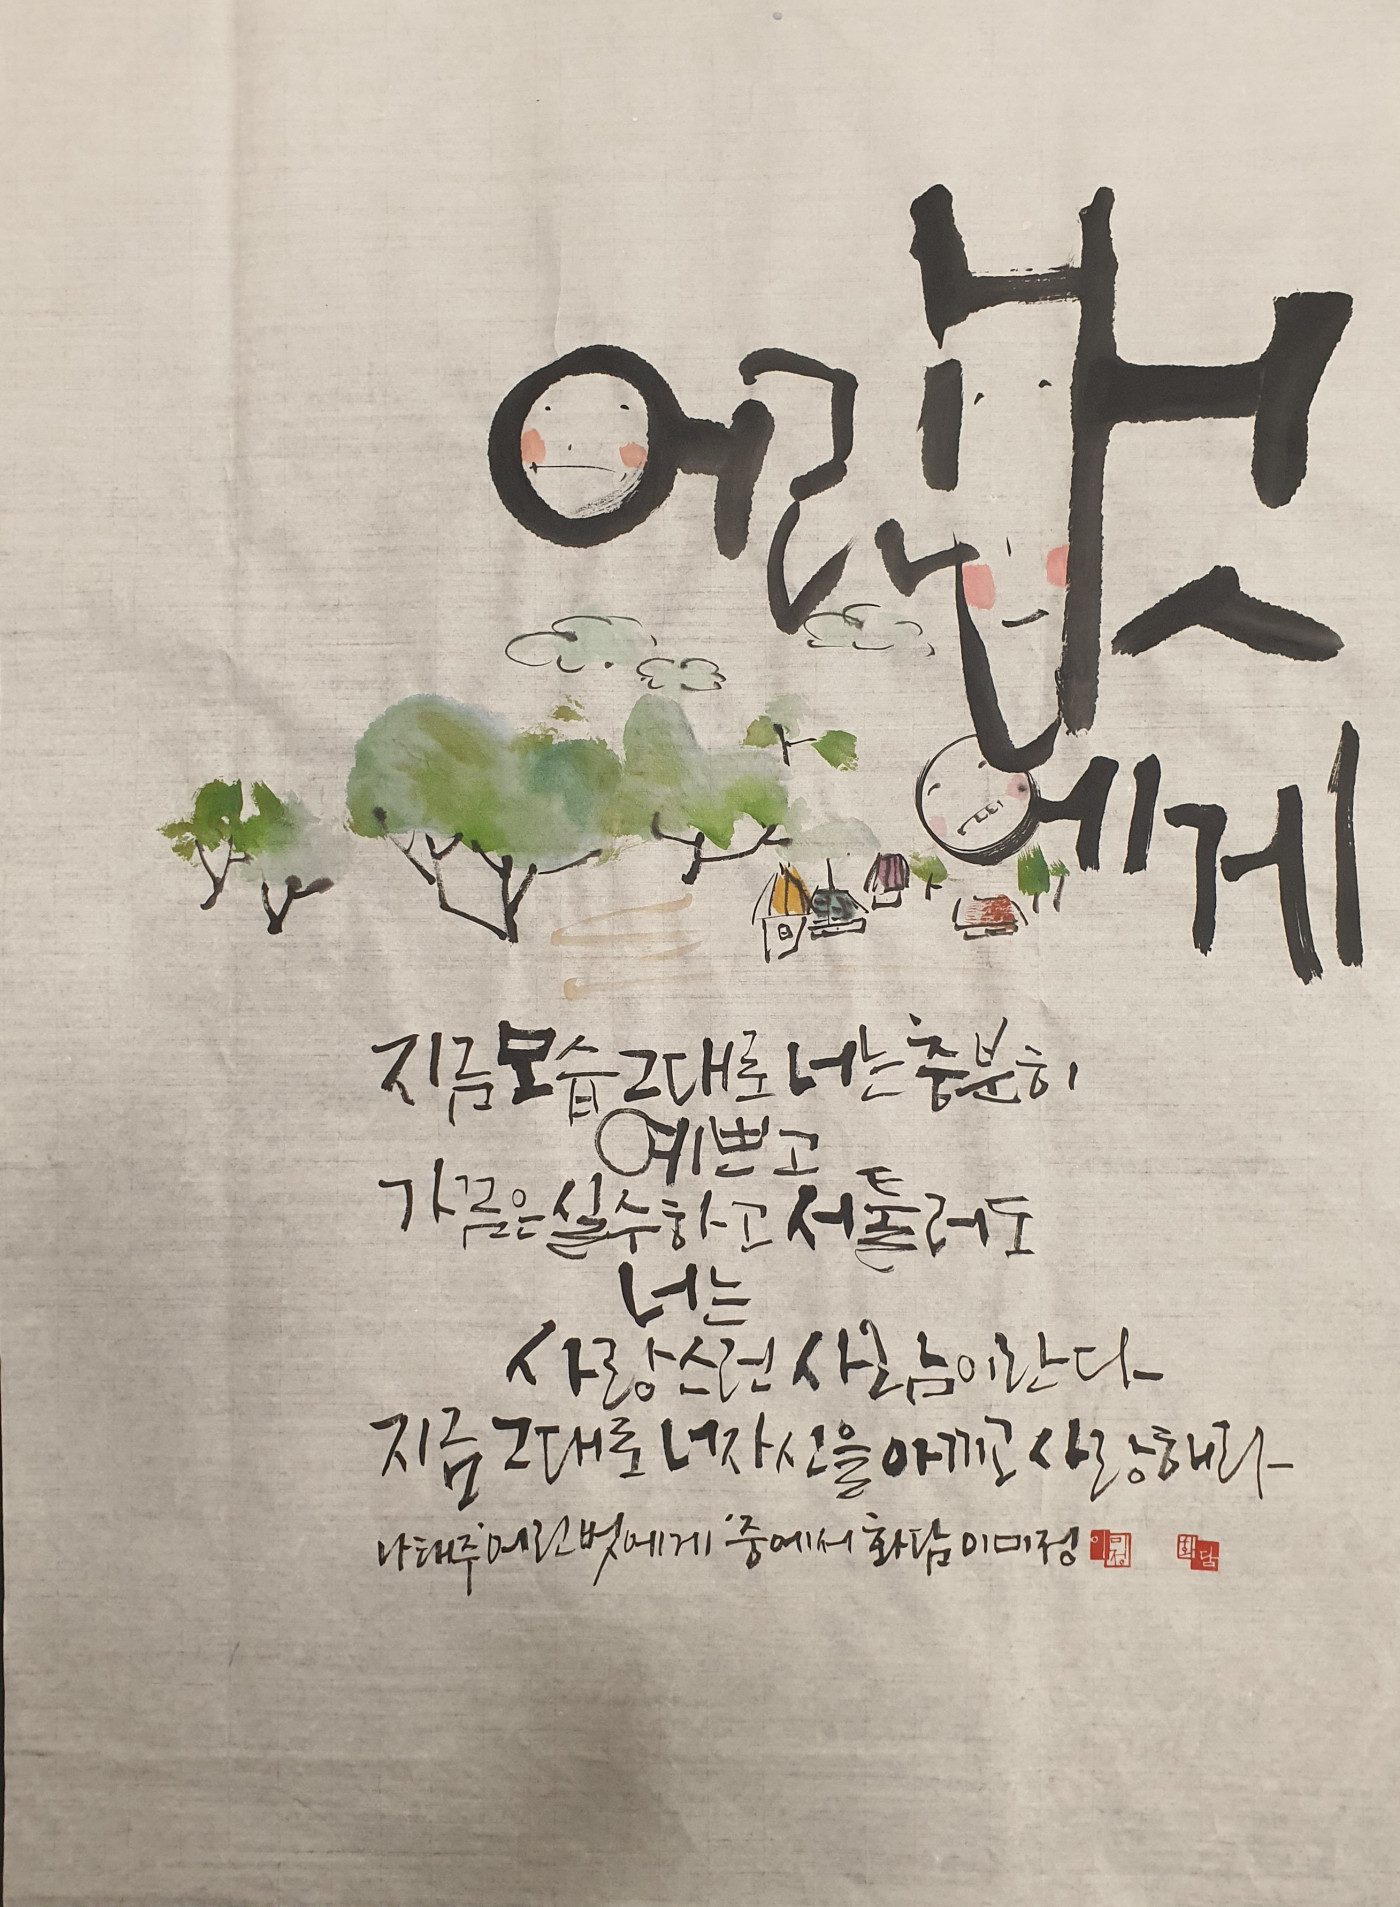 어린 벗
에게
지금 모습 그대로 너는 충분히
예쁘고
가끔은 실수하고 서툴러도
너는
사랑스런 사람이란다
지금 그대로 너 자신을 아끼고 사랑해라
나태주 '어린 벗에게' 중에서 화담 이미정
이미정
화담